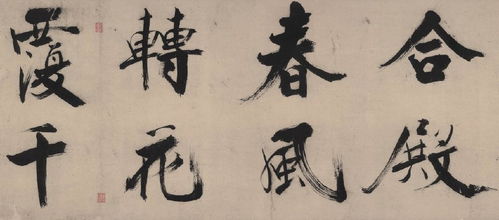 合殿
春風
轉花
覆千